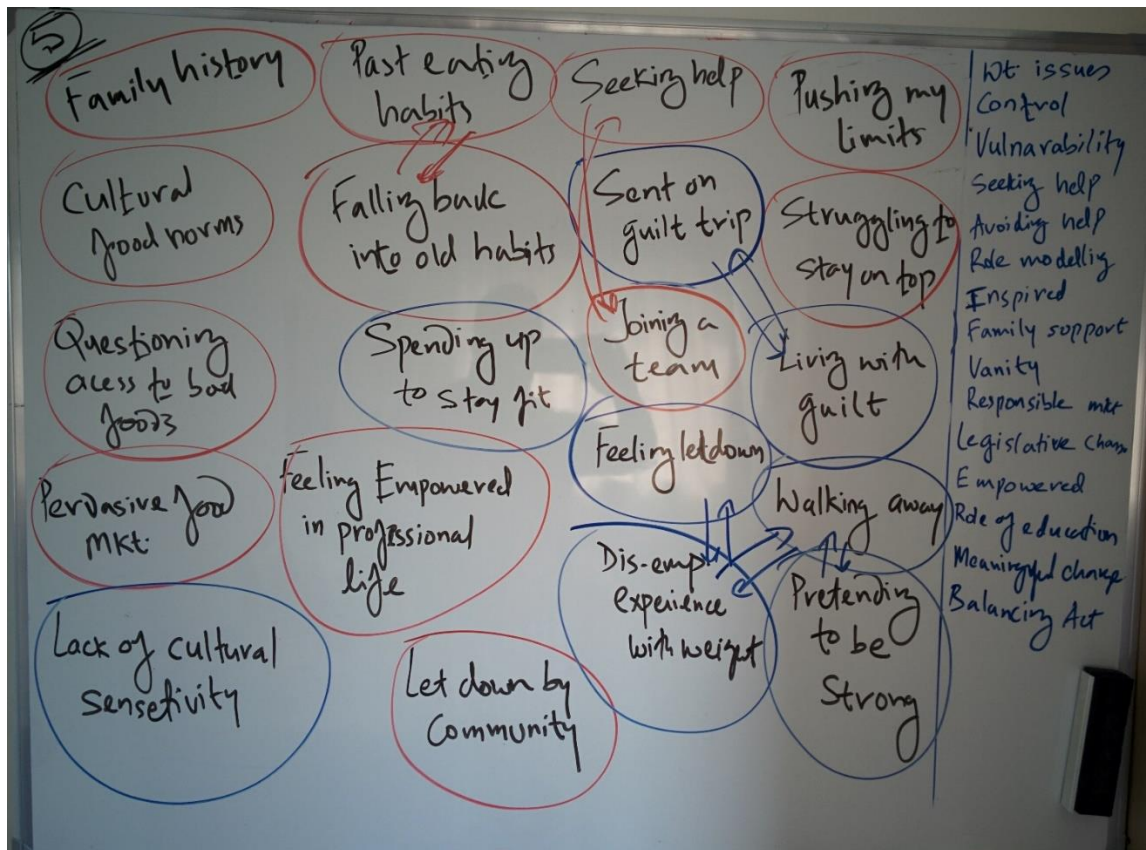 5
Family history
Past eating
habits
Seeking help
Pushing my
limits
Cultural
food norms
Falling back
into old habits
Sent on
guilt trip
Struggling to
stay on top
Questioning
acess to bad
foods
Spending up
to stay fit
Joining a
team
Living with
guilt
Pervasive food
mkt.
Feeling Empowered
in professional
life
Feeling letdown
Walking away
Lack of cultural
sensetivity
Let down by
Community
Dis-emp
experience
with weight
Pretending
to be
Strong
Wt issues
Control
Vulnarability
Seeking help
Avoiding help
Role modellig
Inspired
Family support
Vanity
Responsible mkt
Legislative
Empowered
Role of education
Meaningful change
Balancing Act